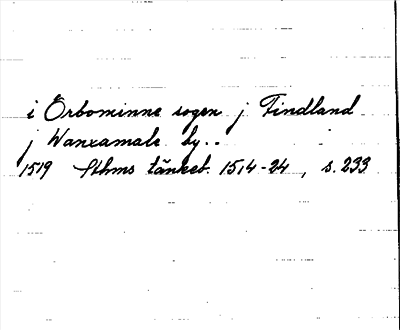 i Erbominne sogen j Findland
j Wanxamale by..
1519 Sthms tänkeb. 1514-24, s. 233